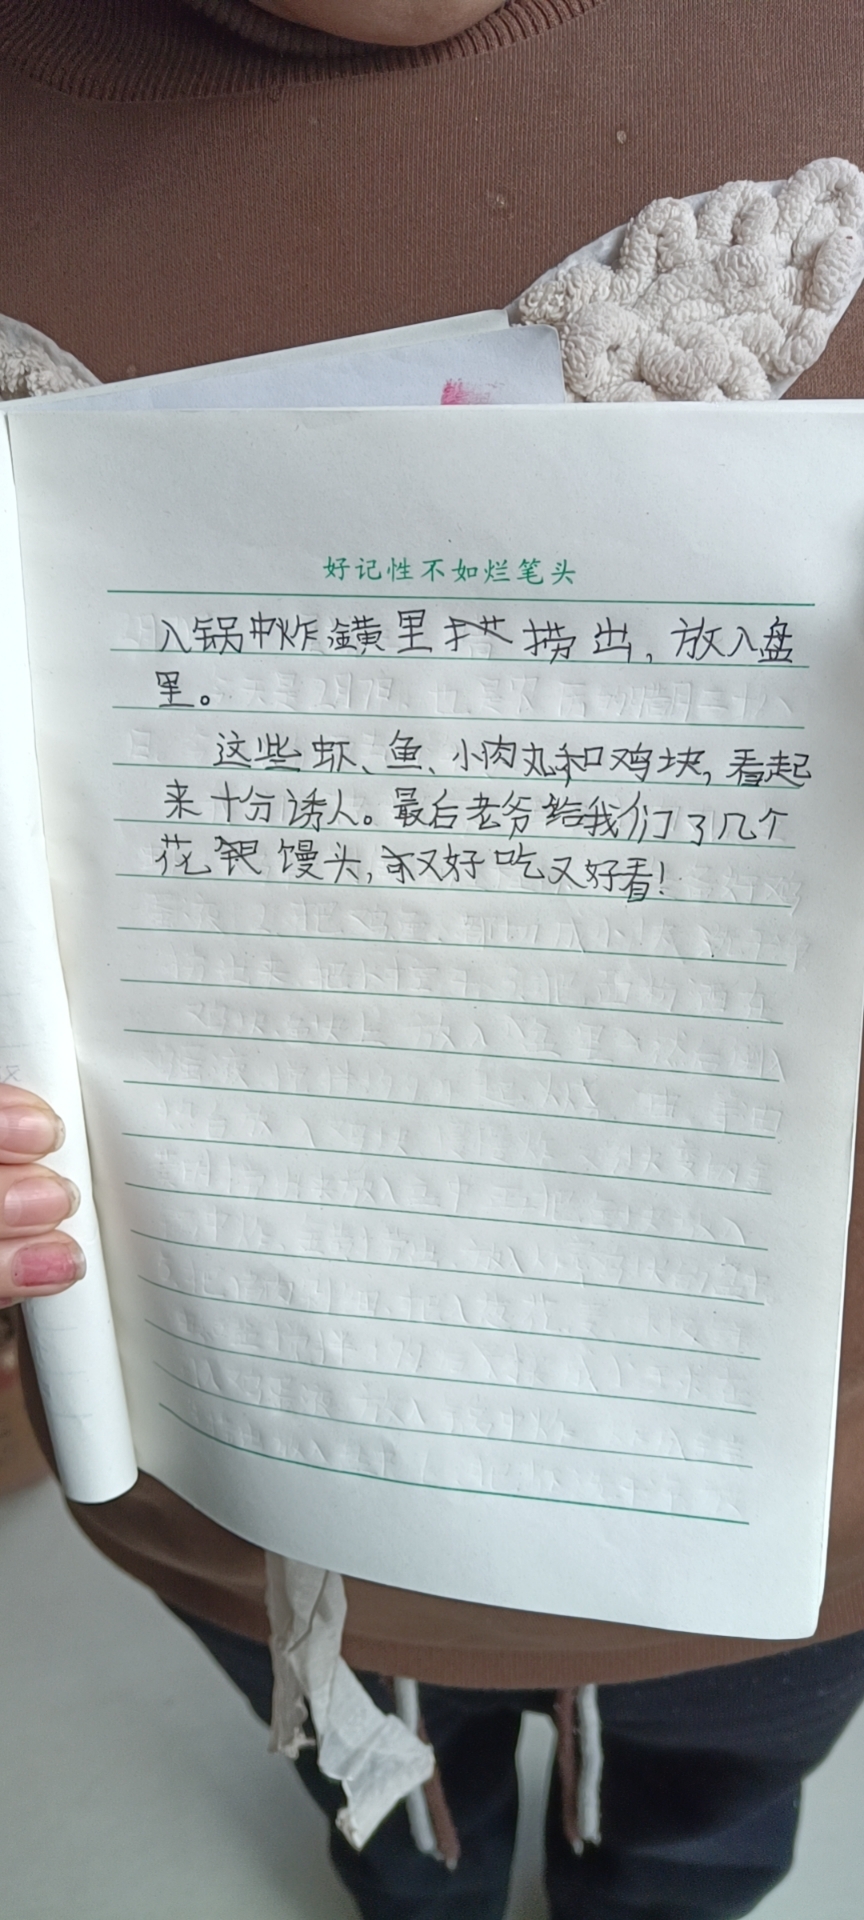 好记性不如烂笔头
入锅中炸 黄里 捞出，放入盘
里。
这些虾、鱼、小肉丸和鸡块，看起
来十分诱人。最后老爷给我们了几个
花 馒头，又好吃又好看！